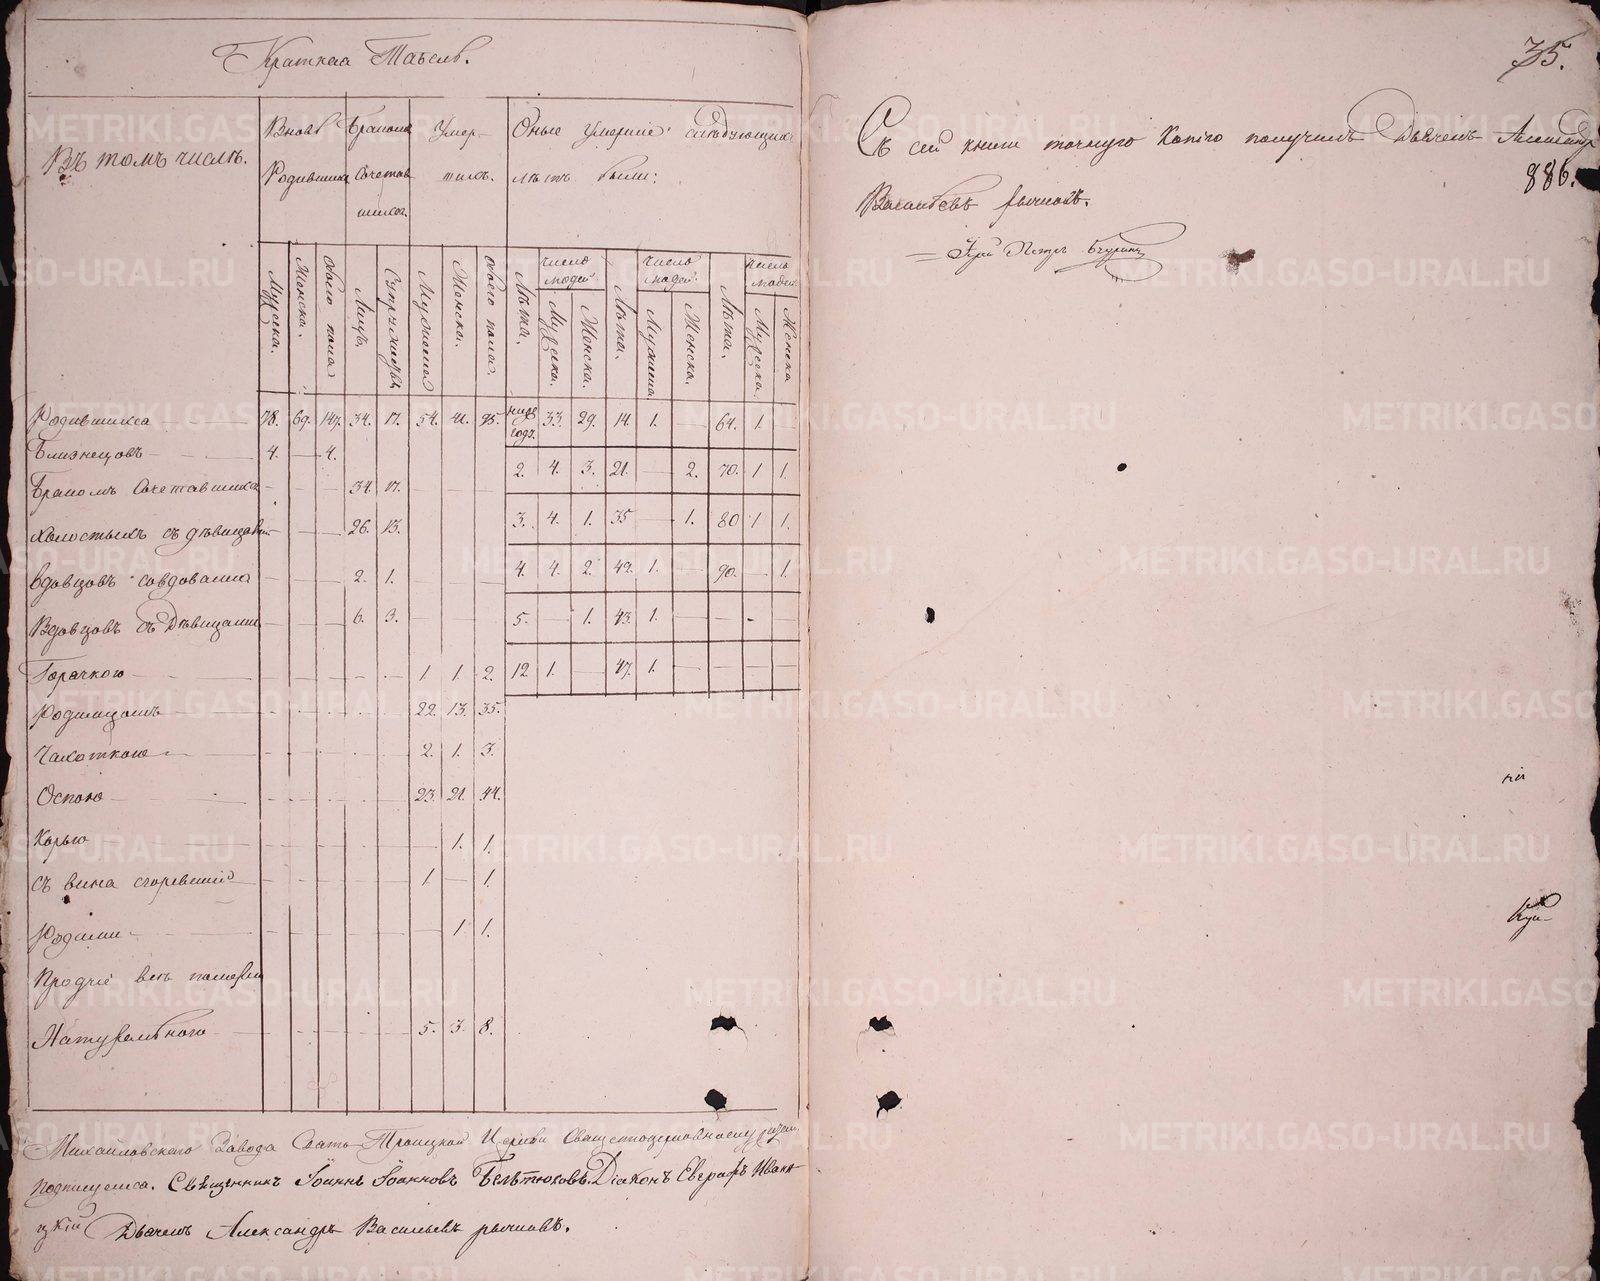 Краткая Табель.
Въ томъ числѣ.
Вновь Родившихся
Бракомъ Сочетавшихся
Умершихъ.
Оные умершіе слѣдующихъ лѣтъ были:
Мужска. Женска. Обоего пола Лицъ. Супружествъ. Мужеска Женска. Обоего пола. Лѣта. число людей. Мужска. Женска. Лѣта. число людей. Мужеска. Женска. Лѣта. число людей. Мужска. Женска
Родившихся 78. 69. 147. 34. 17. 54. 41. 95. ниже года. 33. 29. 14. 1. 64. 1.
Близнецовъ 4. 4. 2. 4. 3. 21. 2. 70. 1 1.
Бракомъ Сочетавшихся 34. 17.
3. 4. 1. 35 1. 80 1 1.
холостыхъ съ дѣвицами 26. 13.
4. 4. 2. 42. 1. 90. 1.
вдовцовъ со вдовами 2. 1.
Вдовцовъ съ Дѣвицами 6. 3. 5. 1. 43. 1.
Горячкою 1 1. 2. 12 1. 47. 1.
Родимцомъ 22. 13. 35.
Чахоткою 2. 1. 3.
Оспою 23. 21. 44.
Корью 1. 1.
съ вина сгоревшій 1 1.
Родами 1 1.
Прочіе всѣ померли
Натурально 5. 3. 8.
Михайловскаго Завода Свято Троицкой Церкви Священноцерковнослужители
подписуемся. Священникъ Іоаннъ Іоанновъ Бельтюковъ. Діаконъ Евграфъ Иваниц
цкій Дьячекъ Александръ Васильевъ рычковъ.
35.
886.
Съ сей книги точную Копію получилъ Дьячекъ Александръ
Васильевъ рычковъ.
Петръ